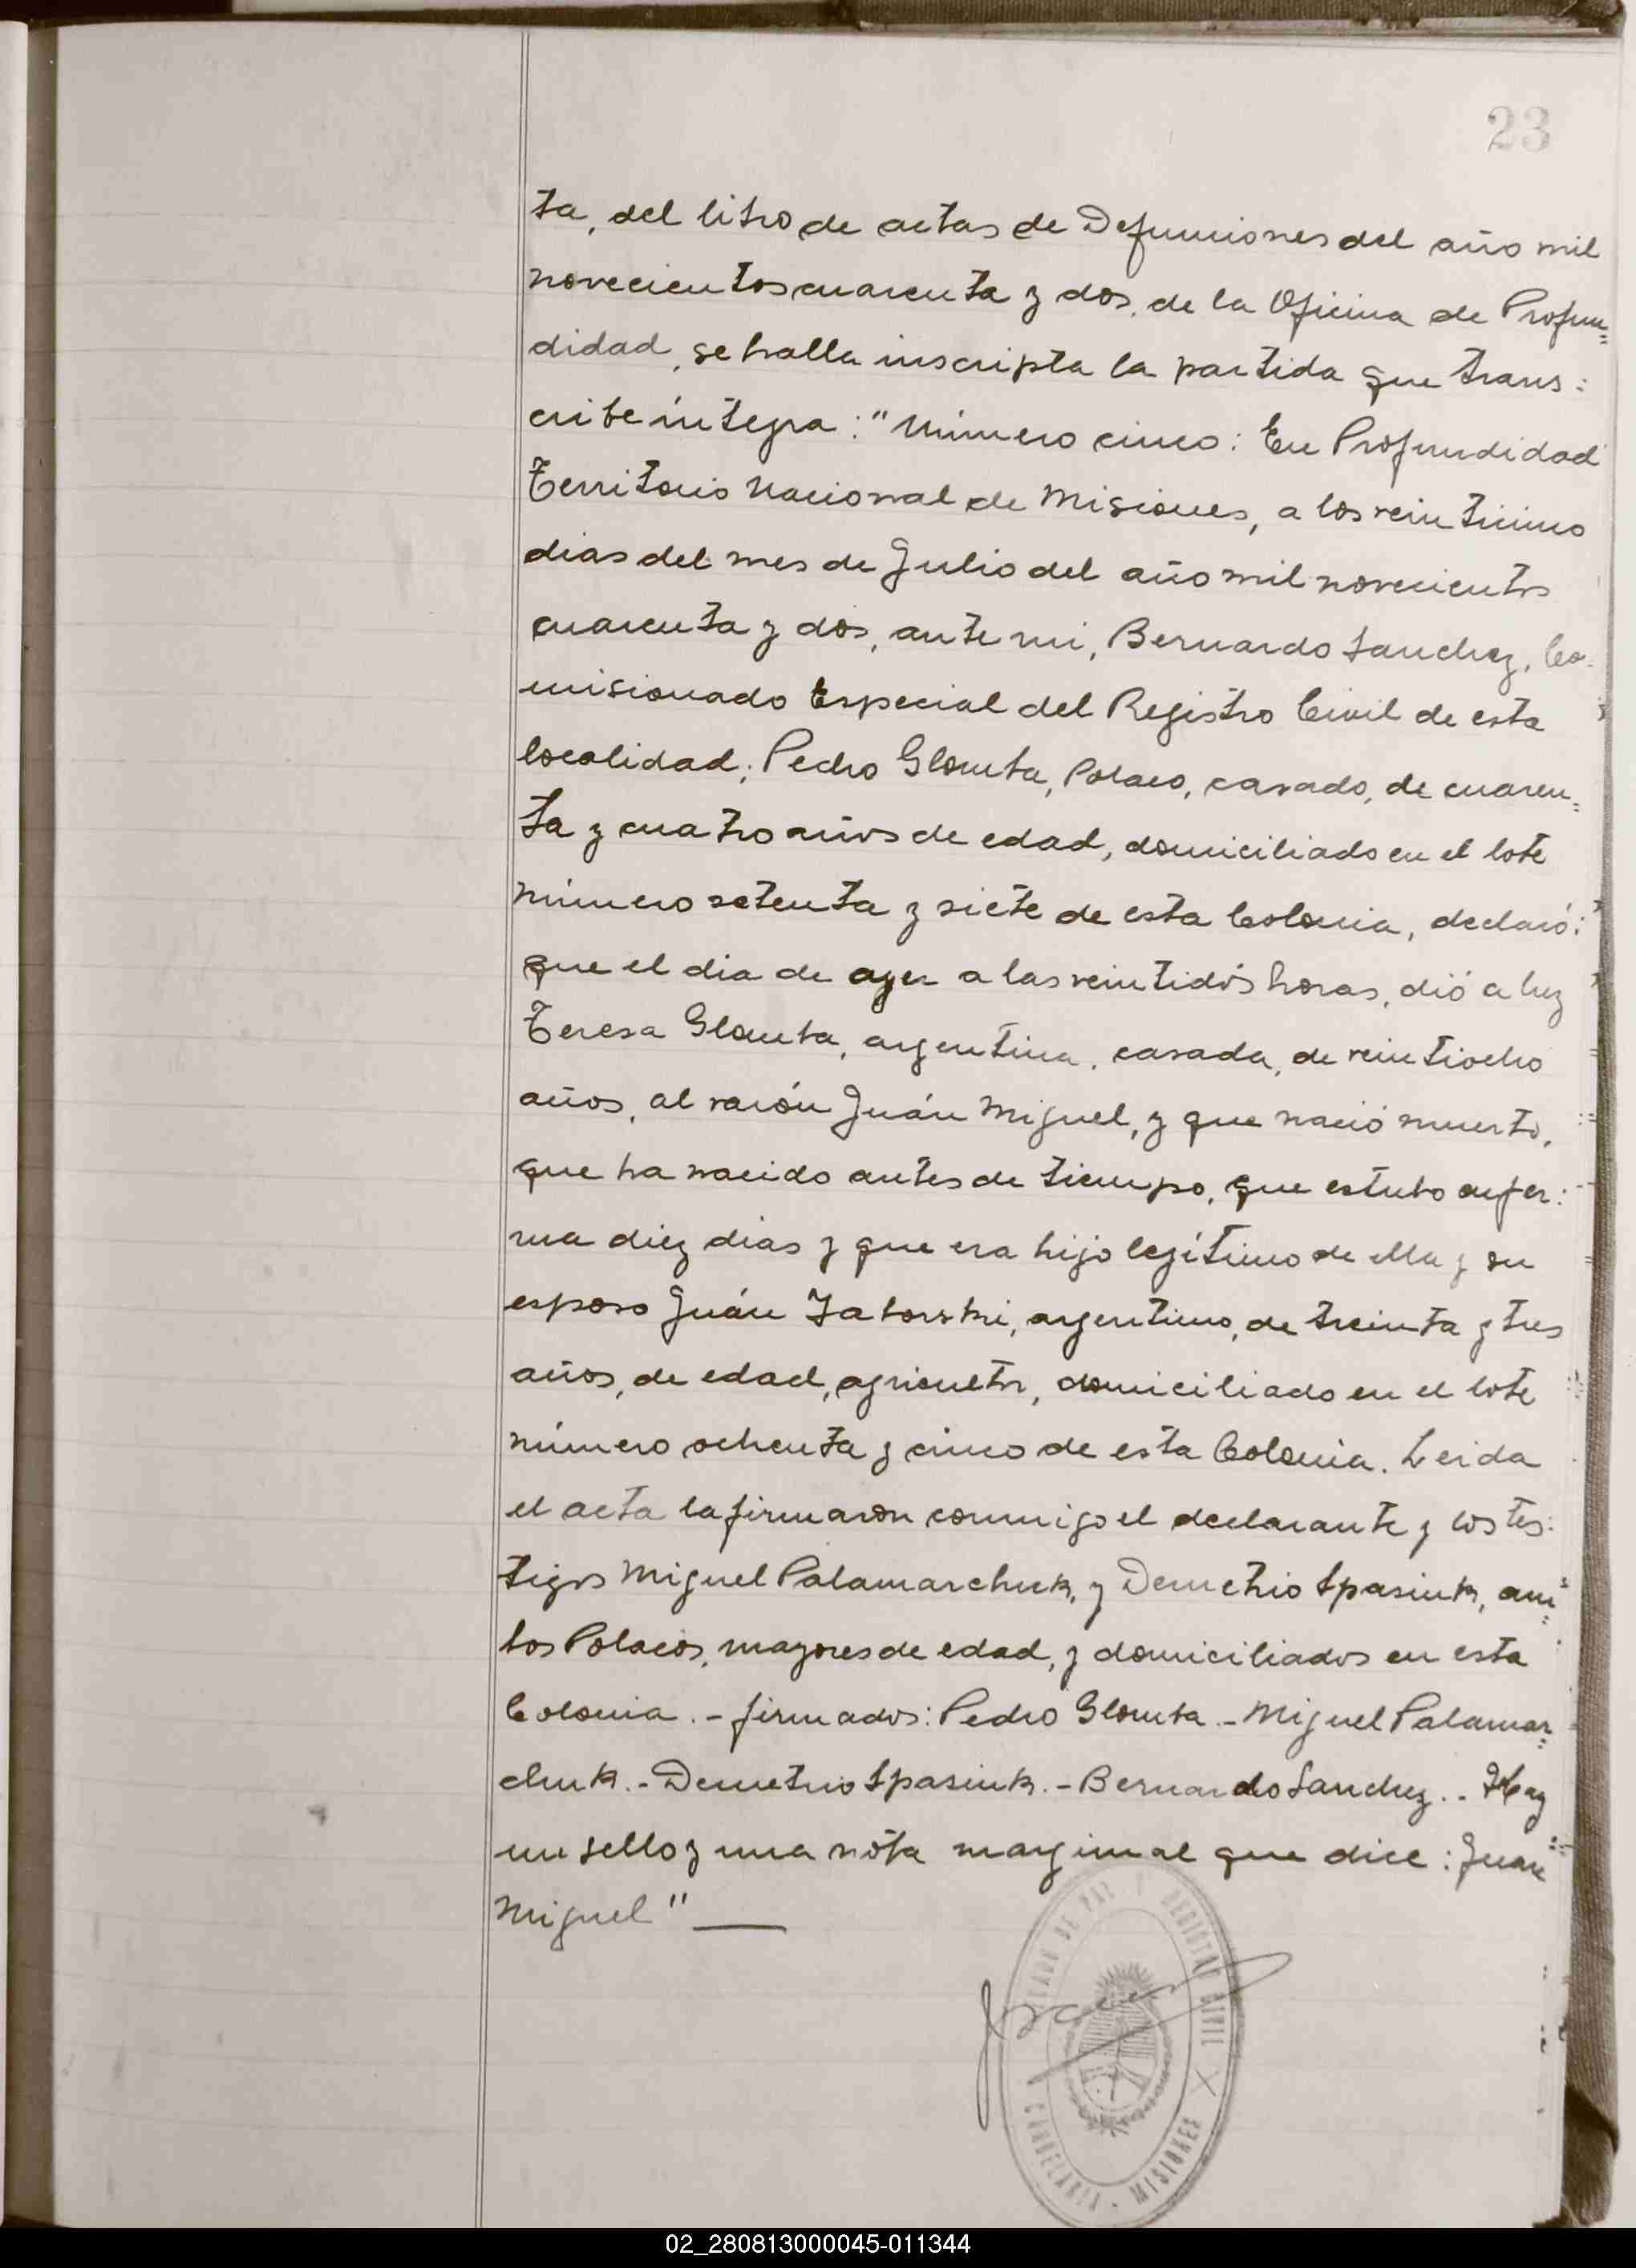 23
ta, del libro de actas de Defunciones del año mil
novecientos cuarenta y dos, de la Oficina de Profun=
didad, se halla inscripta la partida que trans=
cribe íntegra: "Número cinco: En Profundidad
Territorio Nacional de Misiones, a los veinticinco
dias del mes de Julio del año mil novecientos
cuarenta y dos, ante mi, Bernardo Sanchez, Co=
misionado Especial del Registro Civil de esta
localidad; Pedro Glomba, Polaco, casado, de cuaren=
ta y cuatro años de edad, domiciliado en el lote
número setenta y siete de esta Colonia, declaró:
que el dia de ayer a las veintidós horas, dió a luz
Teresa Glomba, argentina, casada, de veintiocho
años, al varón Juán Miguel, y que nació muerto,
que ha nacido antes de tiempo, que estubo enfer=
ma diez dias y que era hijo legítimo de ella y su
esposo Juán Zaborski, argentino, de treinta y tres
años, de edad, agricultor, domiciliado en el lote
número ochenta y cinco de esta Colonia. Leida
el acta la firmaron conmigo el declarante y los tes=
tigos Miguel Palamarchuk, y Demetrio Spasiuk, am=
bos Polacos, mayores de edad, y domiciliados en esta
Colonia.- firmados: Pedro Glomba.- Miguel Palamar=
chuk.- Demetrio Spasiuk.- Bernardo Sanchez.- Hay
un sello y una nota marginal que dice: Juan
Miguel"
DE PAZ Y REGISTRO CIVIL
CANDELARIA - MISIONES
02_280813000045-011344